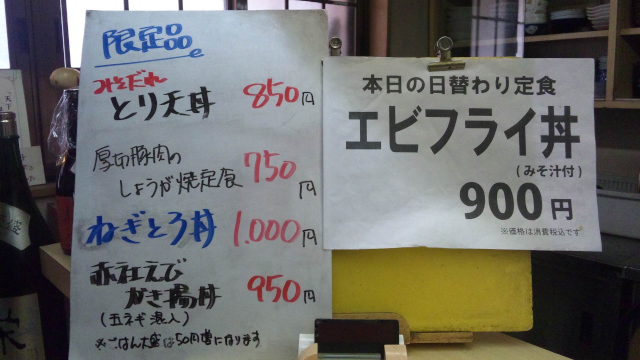 限定品
みそだれ
とり天丼 850円
厚切豚肉の
しょうが焼定食 750円
ねぎとろ丼 1.000円
赤社えび
かき揚丼 950円
(玉ネギ混入)
※ごはん大盛は50円増になります
本日の日替わり定食
エビフライ丼
(みそ汁付)
900円
※価格は消費税込です